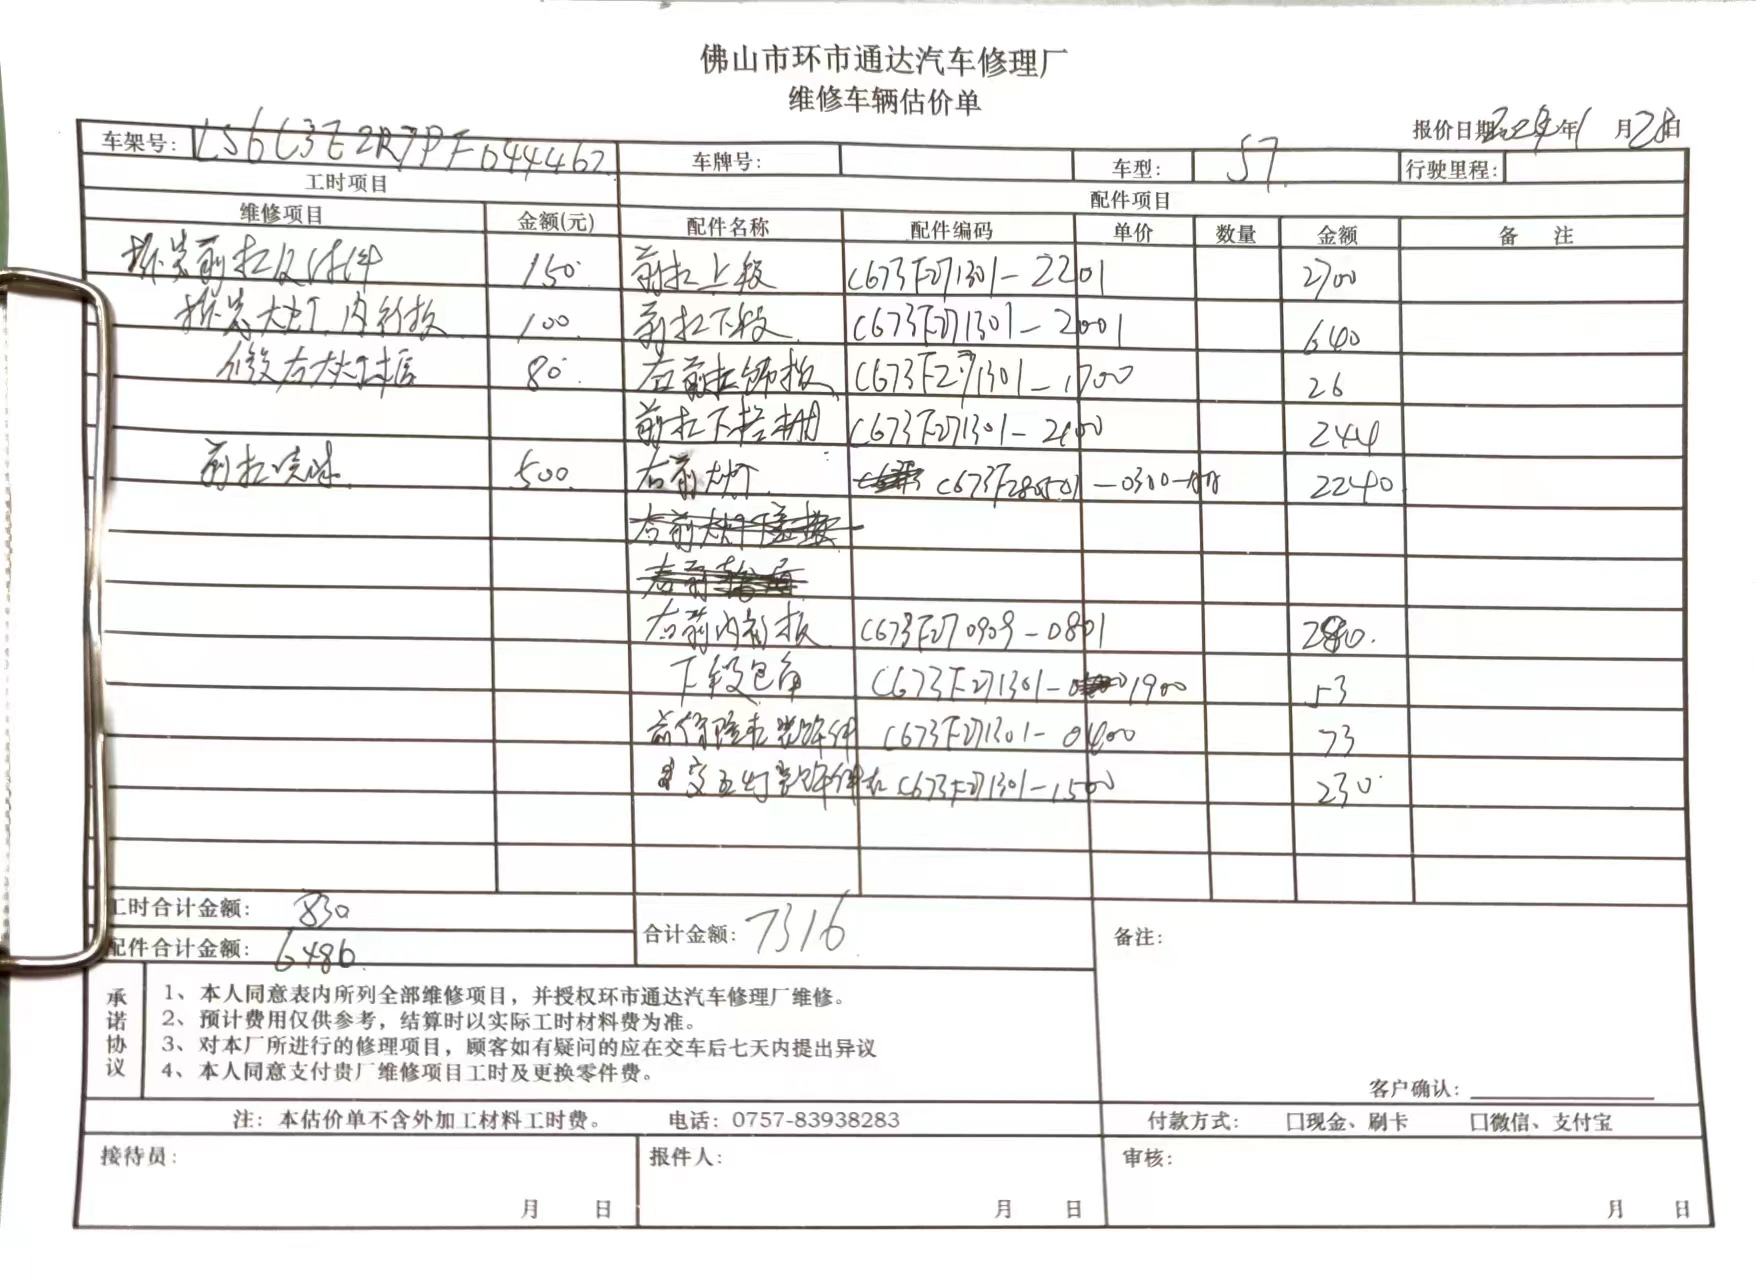 佛山市环市通达汽车修理厂
维修车辆估价单
报价日期: 2024年1月28日
车架号: LS6C3E2R7PF644462 车牌号: 车型: S7 行驶里程:
工时项目 配件项目
维修项目 金额(元) 配件名称 配件编码 单价 数量 金额 备 注
拆装前杠及附件 150 前杠上段 C673F271301-2201 2700
拆装大灯、内衬板 100 前杠下段 C673F271301-2001 640
修右大灯框 80 右前杠饰板 C673F271301-1700 26
前杠下格栅 C673F271301-2100 244
前杠喷漆 500 右前大灯 C673F280501-0300-AA 2240
右前内衬板 C673F270909-0801 280
下段包角 C673F271301-1900 53
C673F271301-0400 73
交互灯装饰件 C673F271301-1500 230
工时合计金额: 830
配件合计金额: 6486
合计金额: 7316
备注:
承诺协议
1、本人同意表内所列全部维修项目，并授权环市通达汽车修理厂维修。
2、预计费用仅供参考，结算时以实际工时材料费为准。
3、对本厂所进行的修理项目，顾客如有疑问的应在交车后七天内提出异议
4、本人同意支付贵厂维修项目工时及更换零件费。
客户确认:
注: 本估价单不含外加工材料工时费。 电话: 0757-83938283 付款方式: 口现金、刷卡 口微信、支付宝
接待员: 报件人: 审核:
月 日 月 日 月 日